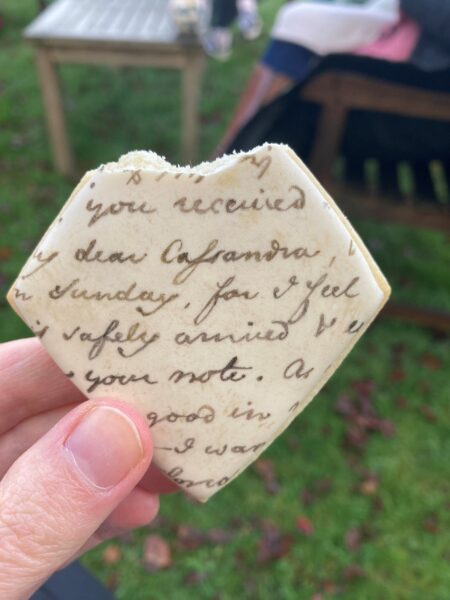 you received
dear Cassandra,
Sunday, for I feel
safely arrived &
your note. As
good in
—I was